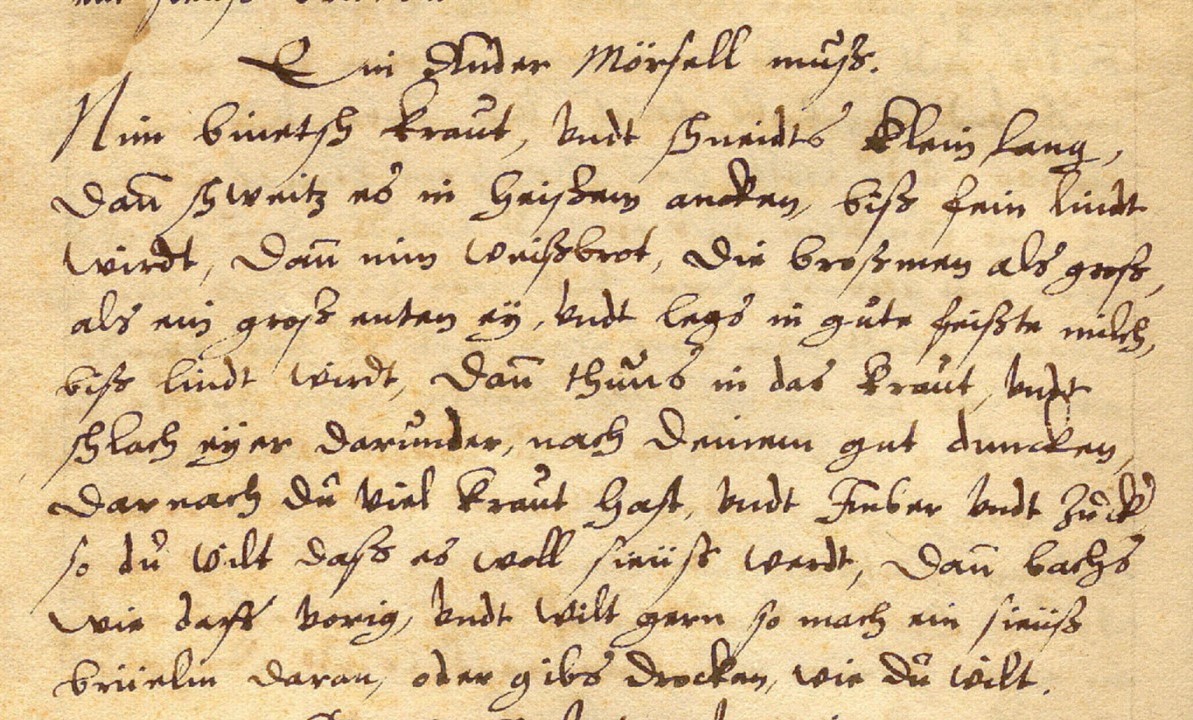 Ein Ander Mörsell muß.
Nim binetsch kraut, vndt schneidts klein lang,
Dan̄ schweitz es in heißem ancken, biß fein lindt
wirdt, Dan̄ nim weißbrot, die broßmen als groß,
als ein groß enten eÿ, vndt legs in gute feißte milch,
biß lindt wirdt, Dan̄ thuus in das kraut, vndt
schlach eÿer darunder, nach deinem gut duncken,
Darnach du viel kraut hast, vndt Imber vndt Zuck
so du wilt daß es woll sieüß werdt, Dan̄ bachs
wie daß vorig, vndt wilt gern so mach ein sieüß
brüelin daran, oder gibs drocken, wie du wilt.